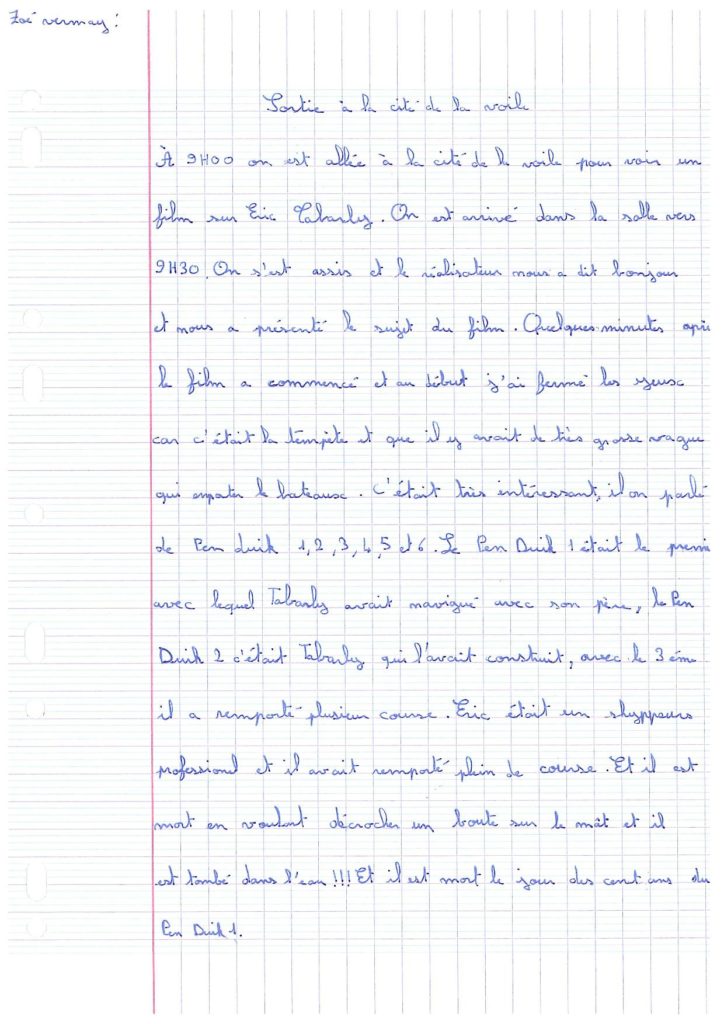 Zoé vermay :
Sortie à la cité de la voile
À 9H00 on est allée à la cité de la voile pour voir un
film sur Eric Tabarly. On est arrivé dans la salle vers
9H30. On s'est assis et le réalisateur nous a dit bonjour
et nous a présenté le sujet du film. Quelques minutes aprè
le film a commencé et au début j'ai fermé les yeux
car c'était la tempête et que il y avait de très grosse vague
qui le bateaux. C'était très intéressant, il on parlé
de Pen duik 1, 2, 3, 4, 5 et 6. Le Pen Duik 1 était le premie
avec lequel Tabarly avait navigué avec son père, le Pen
Duik 2 c'était Tabarly qui l'avait construit, avec le 3 ém
il a remporté plusieur course. Eric était un skyppeurs
professionel et il avait remporté plein de course. Et il est
mort en voulant décrocher un boute sur le mât et il
est tombé dans l'eau !!! Et il est mort le jour des cent ans du
Pen Duik 1.